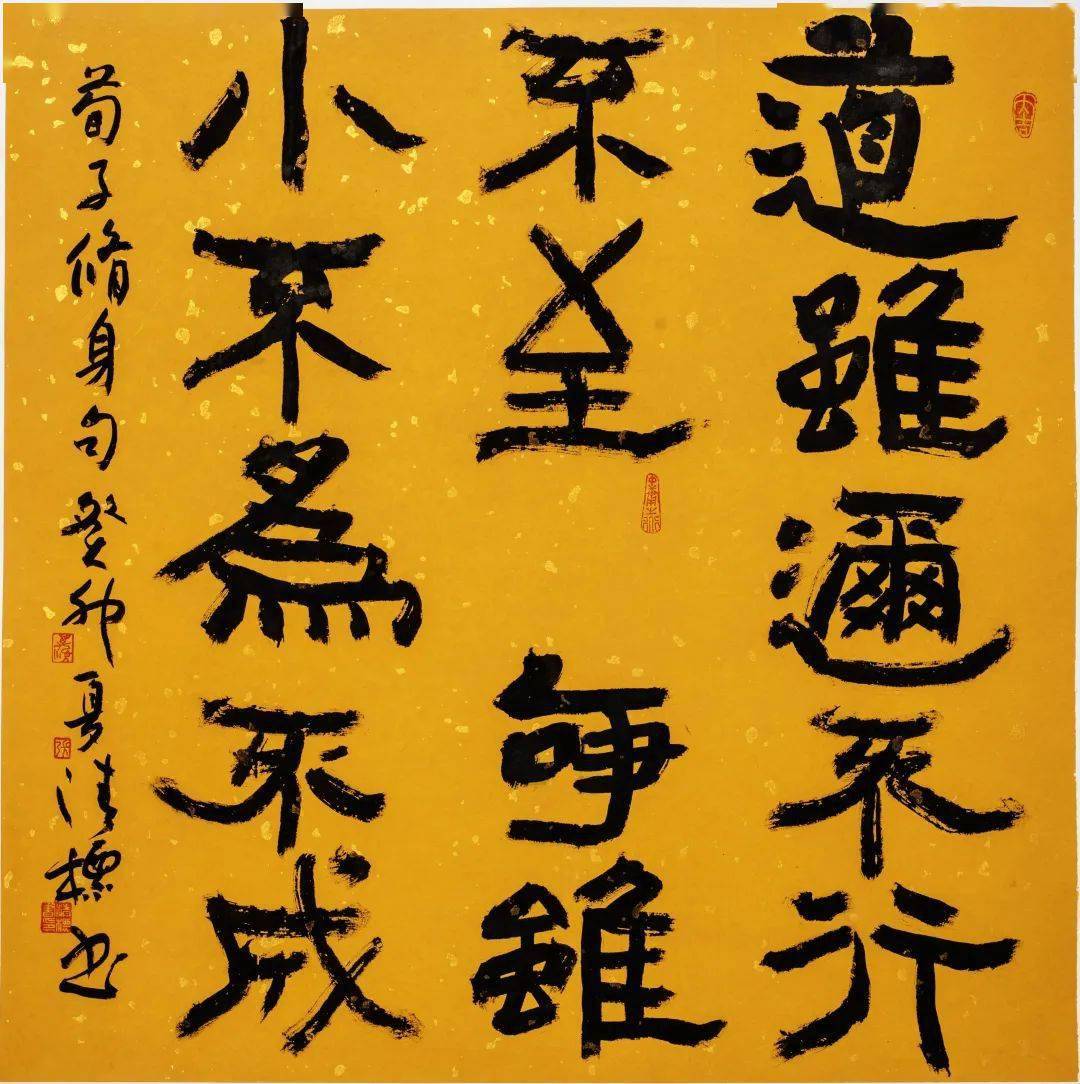 道雖邇不行
不至事雖
小不為不成
荀子脩身句癸卯夏清標书